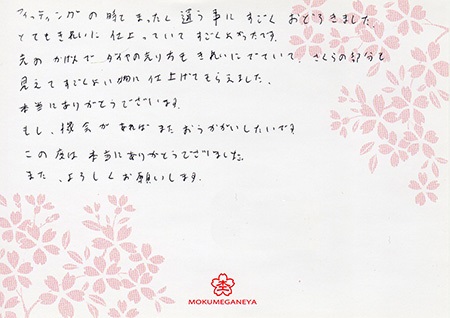 フィッティングの時とまったく違う事にすごくおどろきました。
とてもきれいに仕上っていてすごくよかったです。
光のかげんでダイヤの光り方もきれいにでていて、さくらの部分も
見えてすごくよい物に仕上げてもらえました。
本当にありがとうございます。
もし、機会があればまたおうかがいしたいです
この度は本当にありがとうございました。
また、よろしくお願いします。
MOKUMEGANEYA